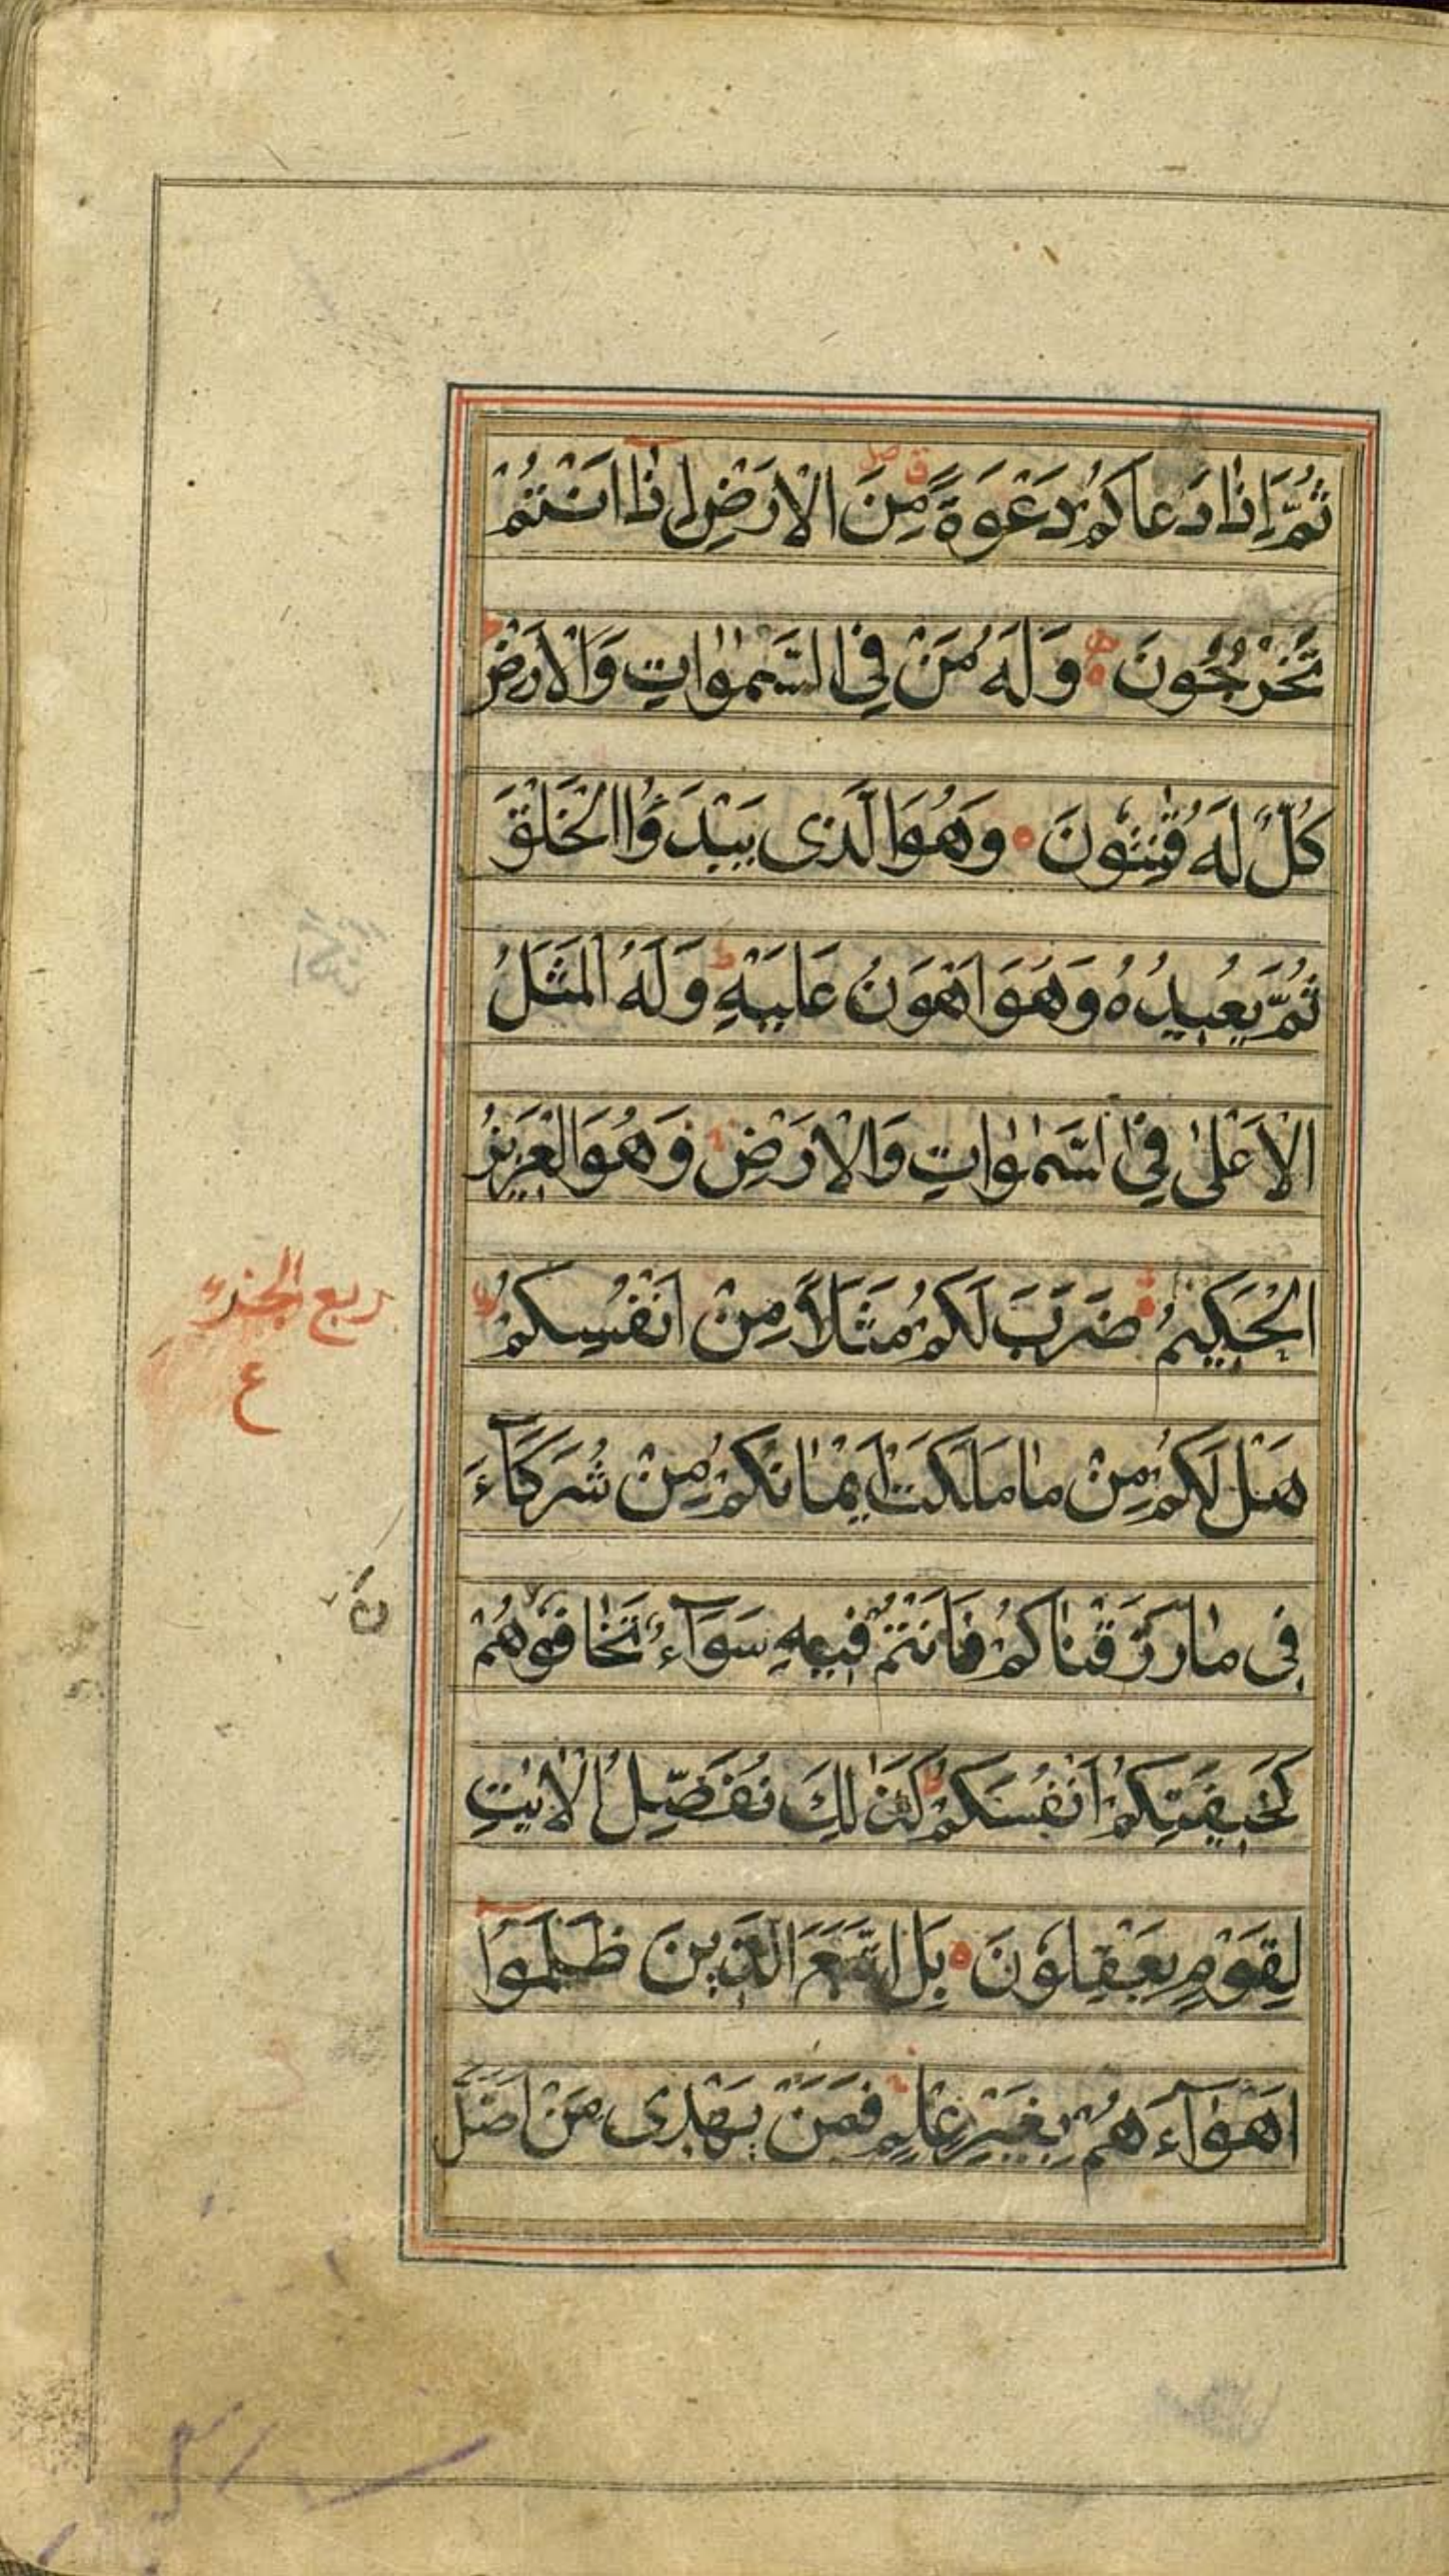 ثُمَّ اِذٰا دَعاكُمْ دَعْوَةً مِنَ الْاَرْضِ اِذٰا اَنْتُمْ
تَخْرُجُونَ وَلَهُ مَنْ فِي السَّمٰوٰاتِ وَالْاَرْضِ
كُلٌّ لَهُ قٰنِتُونَ وَهُوَ الَّذى يَبْدَؤُا الْخَلْقَ
ثُمَّ يُعيدُهُ وَهُوَ اَهْوَنُ عَلَيْهِ وَلَهُ الْمَثَلُ
الْاَعْلىٰ فِي السَّمٰوٰاتِ وَالْاَرْضِ وَهُوَ الْعَزيزُ
الْحَكيمُ ضَرَبَ لَكُمْ مَثَلاً مِنْ اَنْفُسِكُمْ
هَلْ لَكُمْ مِنْ مٰا مَلَكَتْ اَيْمٰانُكُمْ مِنْ شُرَكَآءَ
فى مٰا رَزَقْنٰاكُمْ فَاَنْتُمْ فيهِ سَوَآءٌ تَخٰافُوهُمْ
كَخيفَتِكُمْ اَنْفُسَكُمْ كَذٰلِكَ نُفَصِّلُ الْاٰيٰتِ
لِقَوْمٍ يَعْقِلُونَ بَلِ اتَّبَعَ الَّذينَ ظَلَمُوا
اَهْوٰآءَهُمْ بِغَيْرِ عِلْمٍ فَمَنْ يَهْدى مَنْ اَضَلَّ
ربع الجزء
ع